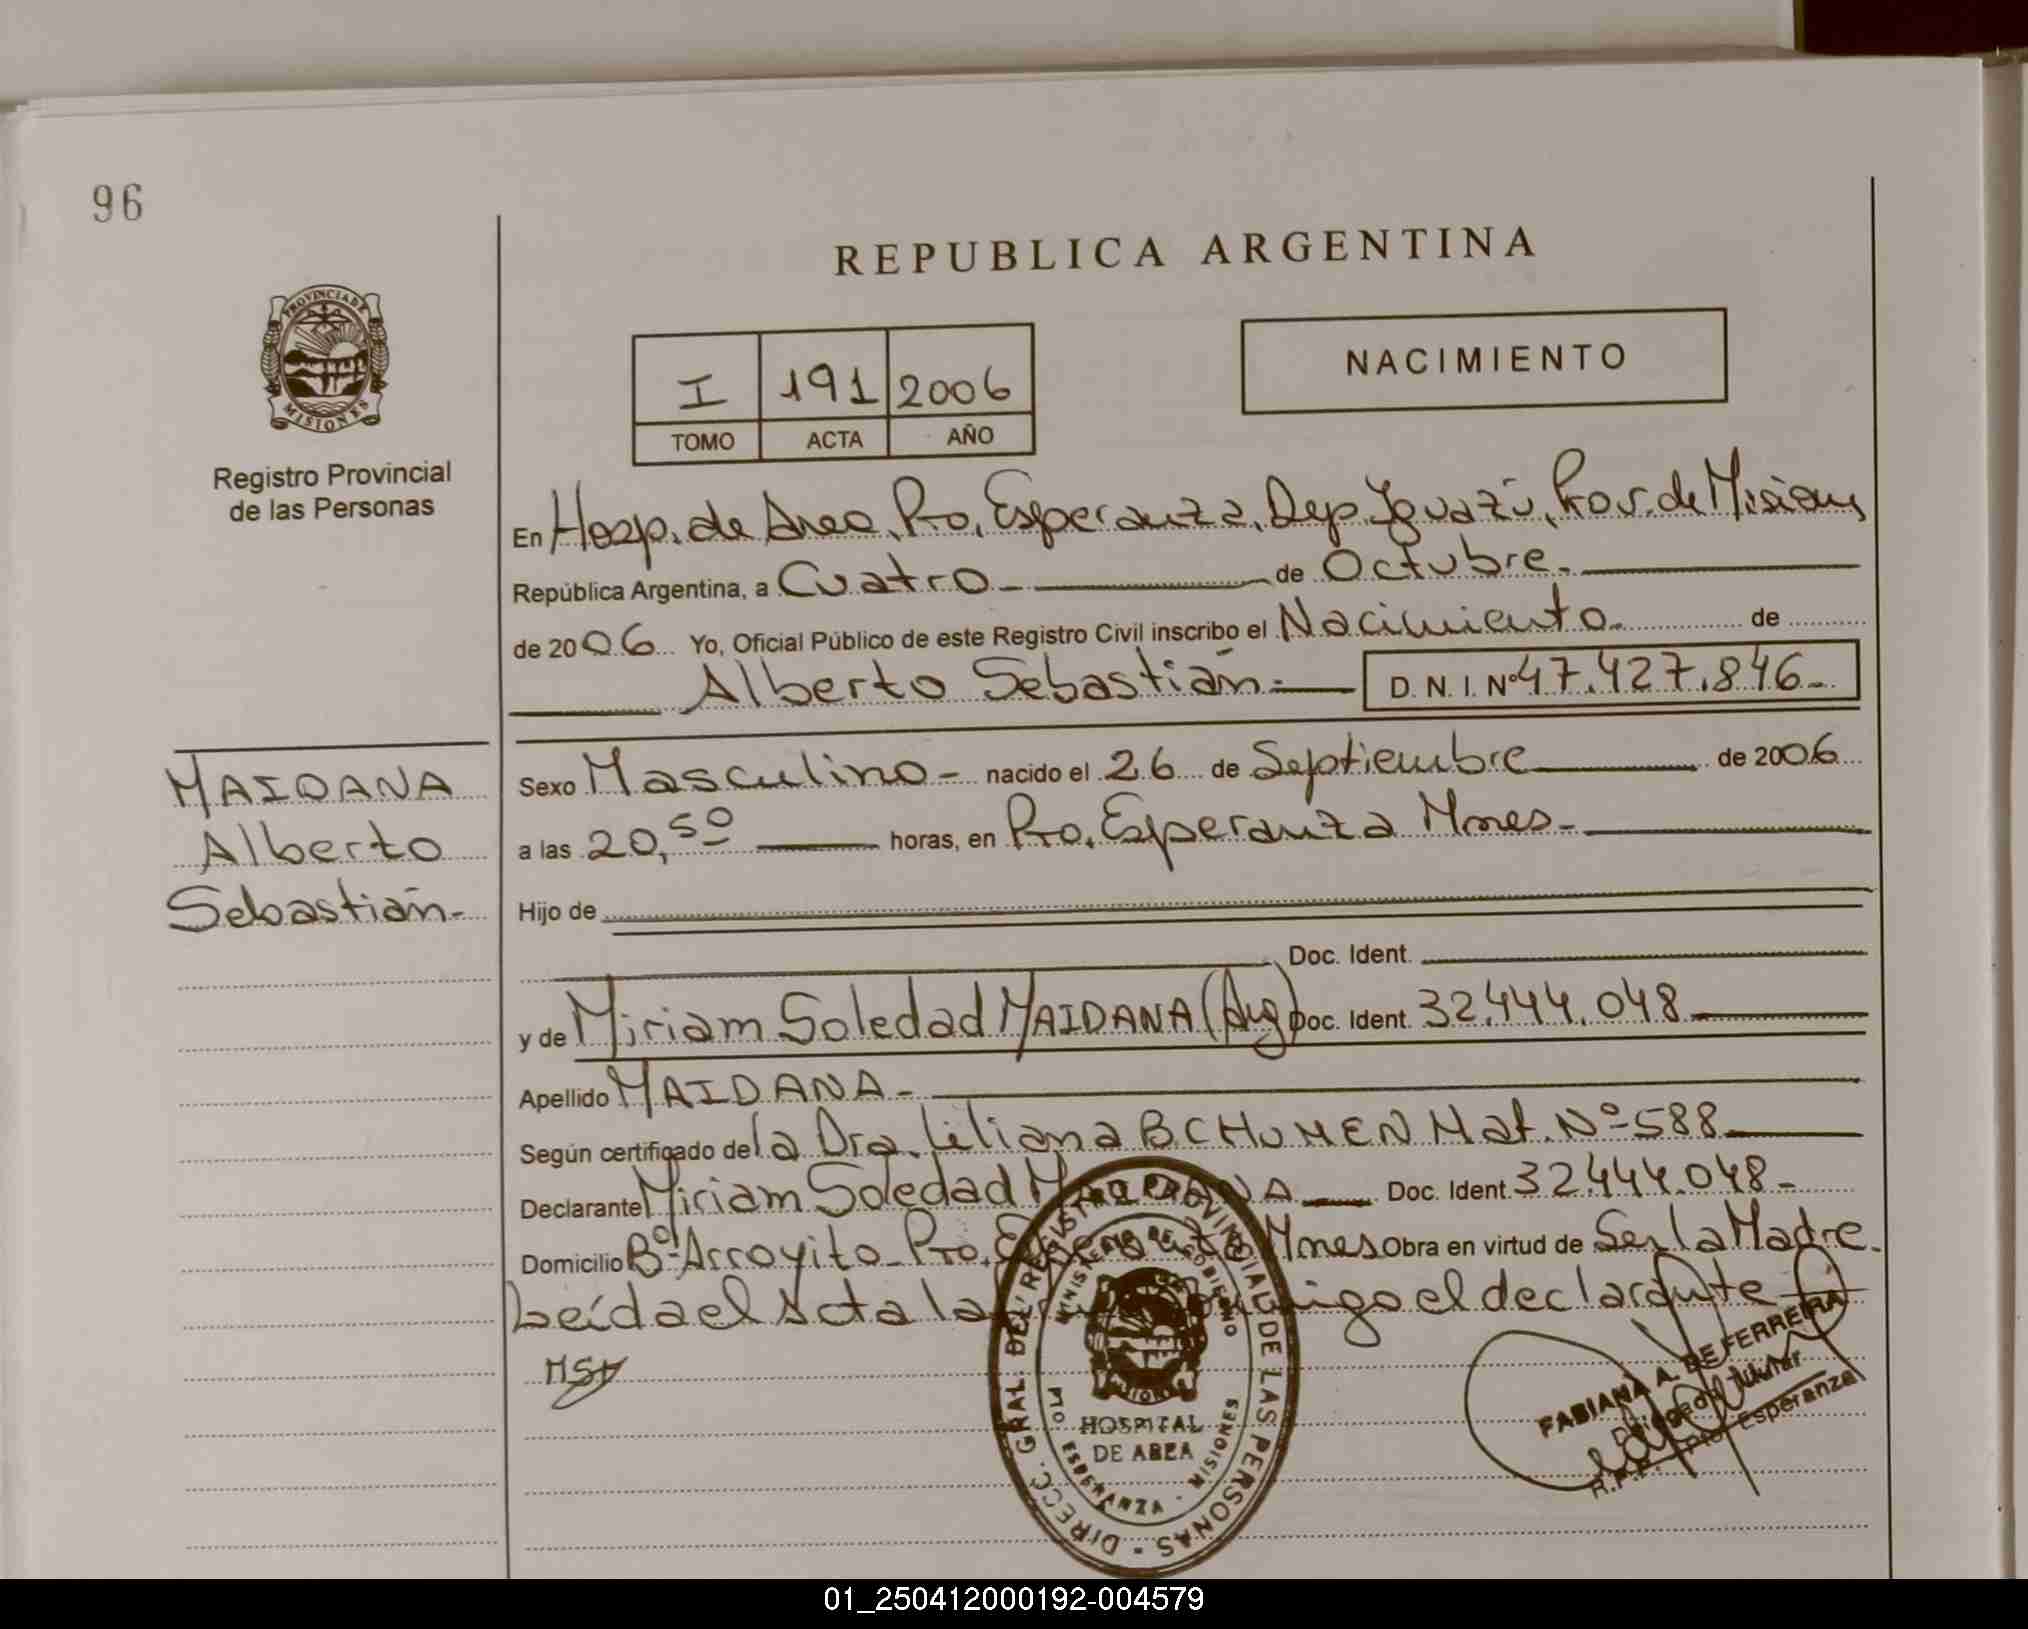 96
REPUBLICA ARGENTINA
PROVINCIA DE
MISIONES
Registro Provincial
de las Personas
I 191 2006
TOMO ACTA AÑO
NACIMIENTO
En Hosp. de Area, Pto. Esperanza, Dep. Iguazú, Prov. de Misiones
República Argentina, a Cuatro de Octubre
de 2006 Yo, Oficial Público de este Registro Civil inscribo el Nacimiento de
Alberto Sebastián D. N. I. Nº 47.427.846
MAIDANA
Alberto
Sebastián
Sexo Masculino nacido el 26 de Septiembre de 2006
a las 20,50 horas, en Pto. Esperanza Mnes
Hijo de
Doc. Ident.
y de Miriam Soledad MAIDANA (Arg) Doc. Ident. 32.444.048
Apellido MAIDANA
Según certificado de la Dra. Liliana B. CHUMEN Mat. Nº 588
Declarante Miriam Soledad MAIDANA Doc. Ident. 32.444.048
Domicilio Bº Arroyito Pto. Esperanza Mnes Obra en virtud de Ser la Madre
Leída el Acta la el declarante
MSM
DIRECC. GRAL. DEL REGISTRO PROVINCIAL DE LAS PERSONAS
MINISTERIO DE GOBIERNO
HOSPITAL
DE AREA
PTO ESPERANZA - MISIONES
FABIANA A. DE FERREIRA
Titular
R.P.P. Pto. Esperanza
01_250412000192-004579